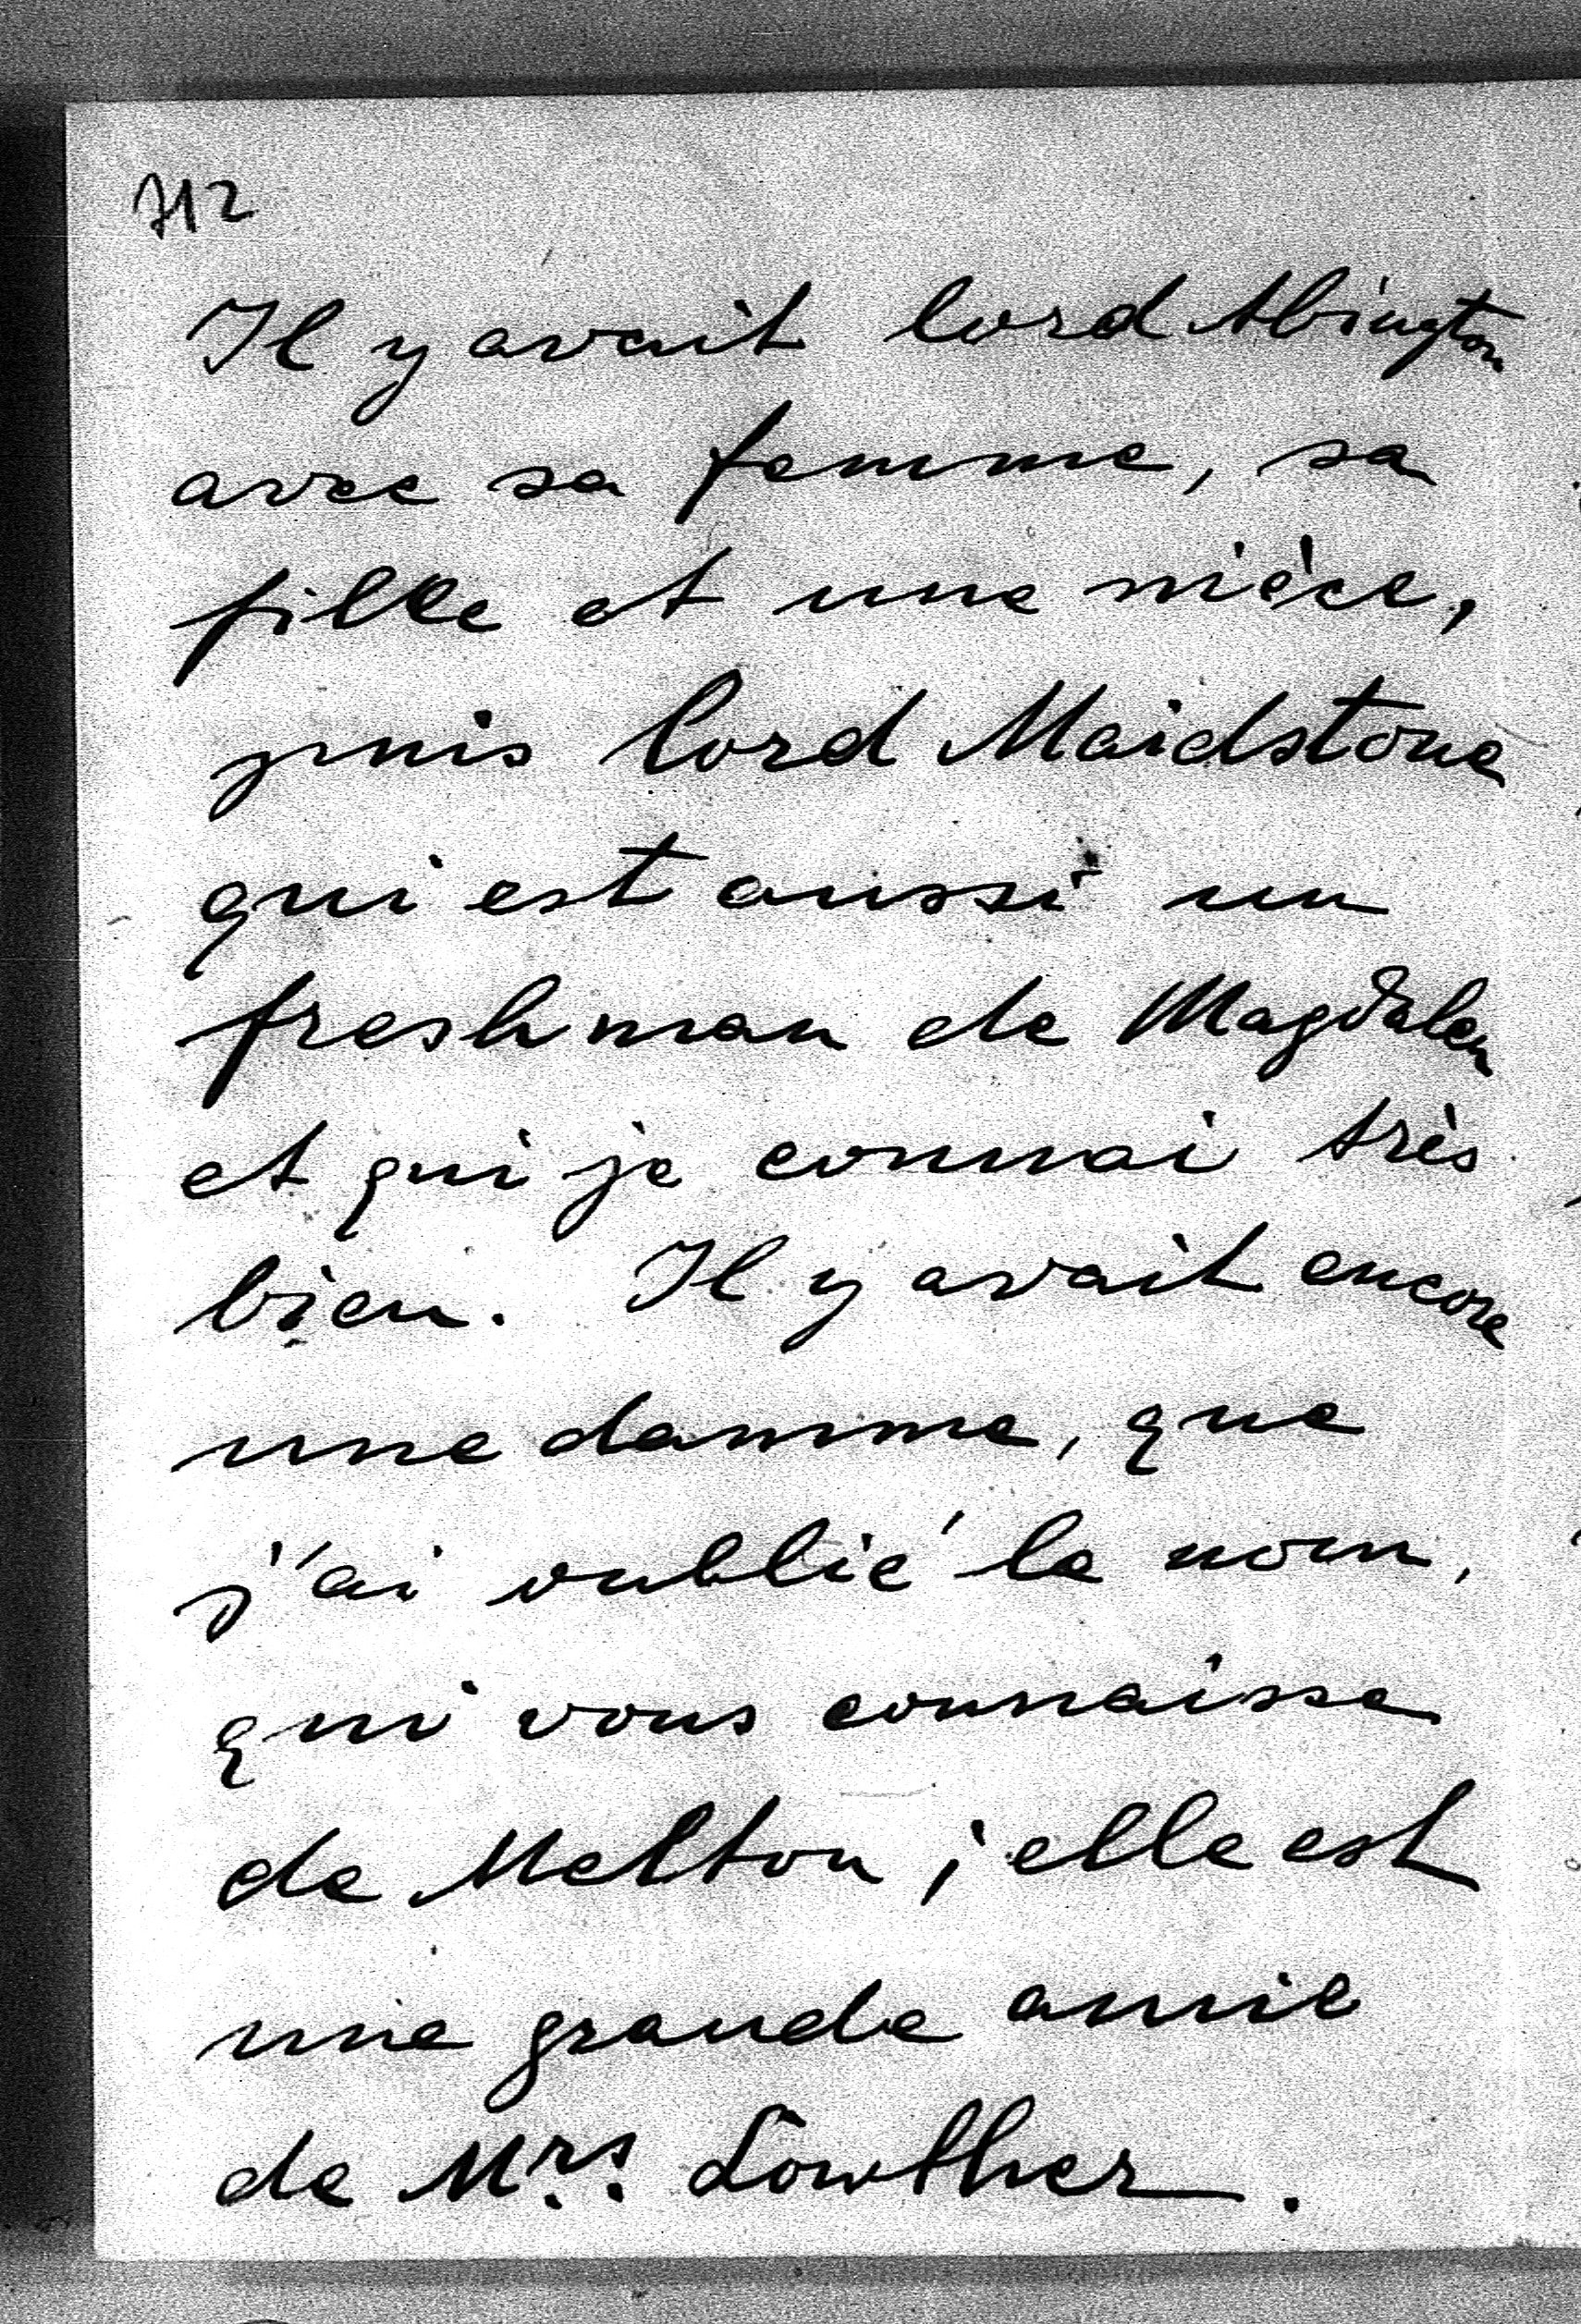 712
Il y avait lord Abington
avec sa femme, sa
fille et une nièce,
puis lord Maidstone
qui est aussi un
freshman de Magdalen
et qui je connai très
bien. Il y avait encore
une damme, que
j'ai oublié le nom,
qui vous connaisse
de Melton ; elle est
une grande amie
de Mrs. Lowther.